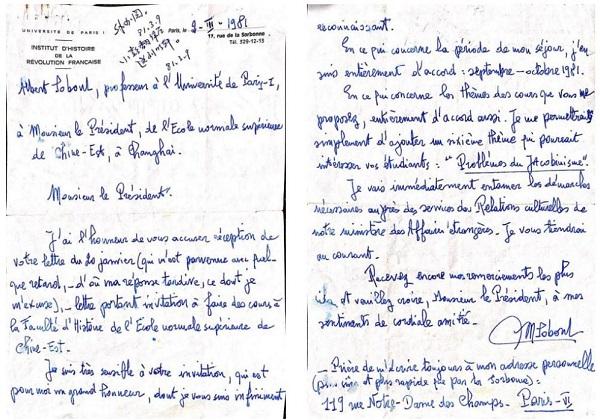 UNIVERSITÉ DE PARIS I
INSTITUT D'HISTOIRE
DE LA
RÉVOLUTION FRANÇAISE
Paris, le 2-III-1981
17, rue de la Sorbonne
Tél. 329-12-13
81.3.9
81.3.9
Albert Soboul, professeur à l'Université de Paris-I,
à Monsieur le Président, de l'Ecole normale supérieure
de Chine-Est, à Shanghai.
Monsieur le Président.
J'ai l'honneur de vous accuser réception de
votre lettre du 20 janvier (qui m'est parvenue avec quel-
que retard, - d'où ma réponse tardive, ce dont je
m'excuse), - lettre portant invitation à faire des cours à
la Faculté d'Histoire de l'Ecole normale supérieure de
Chine-Est.
Je suis très sensible à votre invitation, qui est
pour moi un grand honneur, dont je vous suis infiniment
reconnaissant.
En ce qui concerne la période de mon séjour, j'en
suis entièrement d'accord : septembre - octobre 1981.
En ce qui concerne les thèmes des cours que vous me
proposez, entièrement d'accord aussi. Je me permettrais
simplement d'ajouter un sixième thème qui pourrait
intéresser vos étudiants. - "Problèmes du Jacobinisme".
Je vais immédiatement entamer les démarches
nécessaires auprès des services des Relations culturelles de
notre ministère des Affaires étrangères. Je vous tiendrai
au courant.
Recevez encore mes remerciements les plus
et veuillez croire, Monsieur le Président, à mes
sentiments de cordiale amitié.
AMSoboul
- Prière de m'écrire toujours à mon adresse personnelle
(plus sûr et plus rapide que par la Sorbonne) :
119 rue Notre-Dame des Champs. Paris-VI